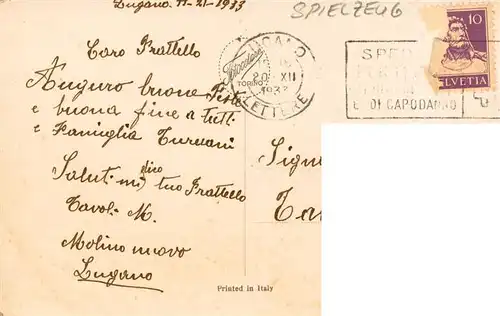 Lugano 11-21-1933
SPIELZEUG
Caro Frattello
Auguro buone Feste
e buona fine a tutti
e Famiglia Turuani
Saluti mi dico tuo Frattello
Tavoli M.
Molino nuovo
Lugano
LUGANO
20 XII
1932
LETTERE
TORINO
SPED
E DI CAPODANNO
10
HELVETIA
Sign
Printed in Italy